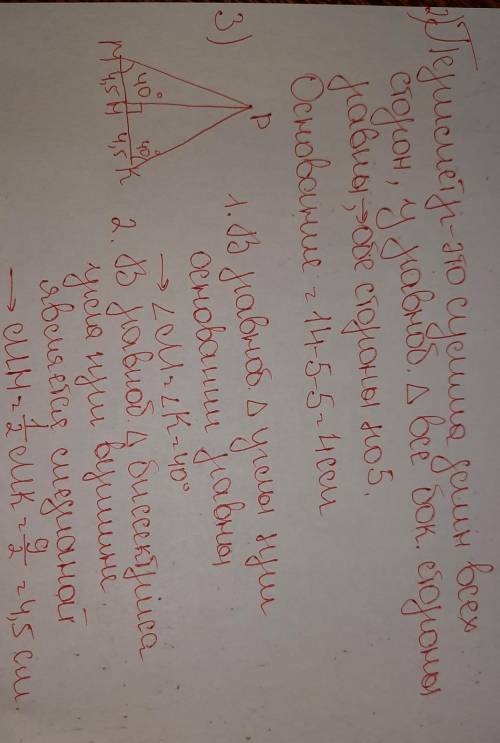 2) Периметр-это сумма длин всех
сторон, у равноб. Δ все бок. стороны
равны, → обе стороны по 5.
Основание = 14-5-5=4см
3)
P
40°
40°
M 4,5 H 4,5 K
1. В равноб. Δ углы при
основании равны
→ ∠M=∠K=40°
2. В равноб. Δ биссектриса
угла при вершине
является медианой
→ MH = 1/2 MK = 9/2 = 4,5 см.